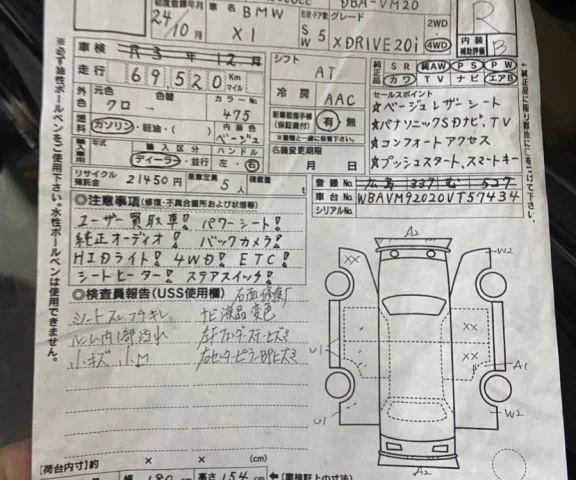 初度登録年月 車名 形状・ドア数 グレード
24/10月 BMW X1 SW 5 DBA-VM20
XDRIVE20i 2WD 4WD
R
内装 補助評価 B
車検 R3年12月
走行 69520 Km マイル
外色 元色 クロ 色替 カラーNo. 475
燃料 ガソリン・軽油・( ) 内装色 ベージュ
輸入車 年式 輸入区分 ディーラー・並行 ハンドル 左・右
リサイクル預託金 21450円 乗車定員 5人 積載量 t
シフト AT
冷房 AAC
新車整備手帳(保証書付) 有・無
※書類と一緒に保管して下さい。
名義変更期限 月 日
純正品 SR 純AW PS PW
カワ TV ナビ エアB
セールスポイント
☆ベージュレザーシート
☆パナソニックSDナビ、TV
☆コンフォートアクセス
☆プッシュスタート、スマートキー
登録No. 広島 337 む 527
車台No. WBAVM92020VT57434
シリアルNo.
◎注意事項(修復・不具合箇所および状態等)
ユーザー買取車! パワーシート!
純正オーディオ! バックカメラ!
HIDライト! 4WD! ETC!
シートヒーター! ステアスイッチ!
◎検査員報告(USS使用欄) 右面修復
シートスレ、ナビ液晶変色
内部汚れ
小キズ 小凹
※必ず油性ボールペンをご使用下さい。水性ボールペンは使用できません。
A2
XX
W2
U1
XX
XX
A1
U1
W2
A2
【荷台内寸】約 × × (cm)
幅 180 高さ 154 cm ←(車検証上の寸法)